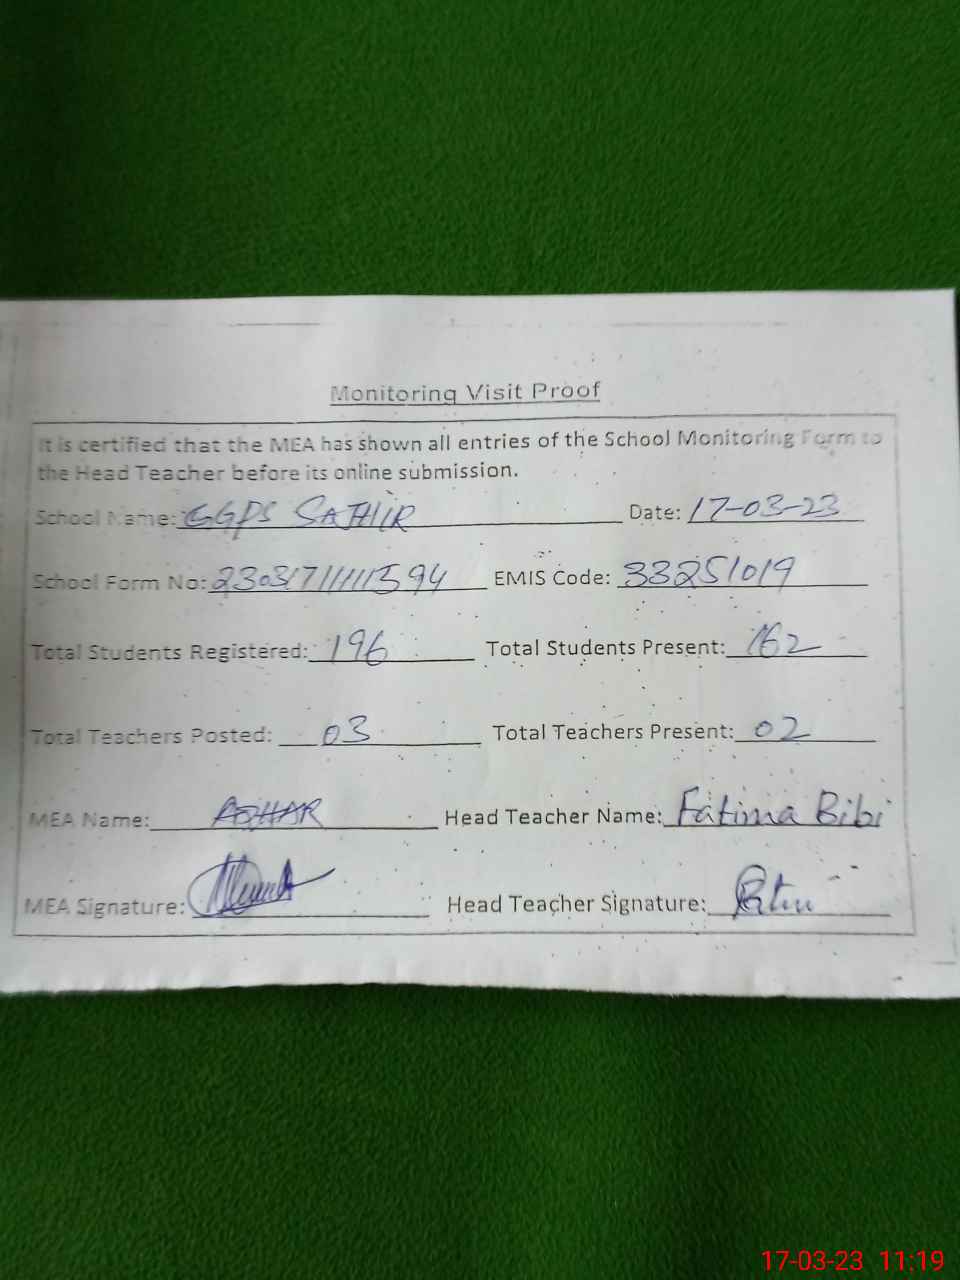 Monitoring Visit Proof
It is certified that the MEA has shown all entries of the School Monitoring Form to
the Head Teacher before its online submission.
School Name: GGPS SATHIR Date: 17-03-23
School Form No: EMIS Code: 33251019
Total Students Registered: 196 Total Students Present: 162
Total Teachers Posted: 03 Total Teachers Present: 02
MEA Name: Head Teacher Name: Fatima Bibi
MEA Signature: Head Teacher Signature:
17-03-23 11:19